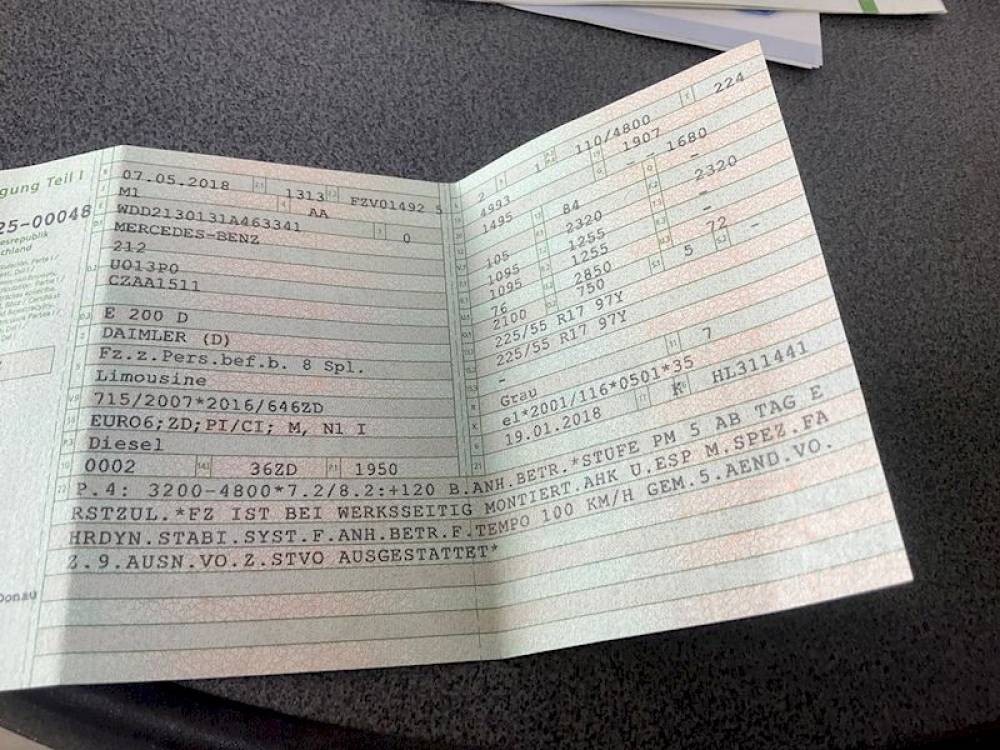 gung Teil I
25-00048
07.05.2018 1313 FZV01492 5
M1 AA
WDD2130131A463341 0
MERCEDES-BENZ
212
U013P0
CZAA1511
E 200 D
DAIMLER (D)
Fz.z.Pers.bef.b. 8 Spl.
Limousine
715/2007*2016/646ZD
EURO6;ZD;PI/CI; M, N1 I
Diesel
0002 36ZD 1950
2 1 110/4800 224
4993 - 1907 - 1680
1495 84 - 2320
105 2320 -
1095 1255 -
1095 1255 72 -
76 2850 5
2100 750
225/55 R17 97Y
225/55 R17 97Y
-
Grau 7
e1*2001/116*0501*35
19.01.2018 K HL311441
P.4: 3200-4800*7.2/8.2:+120 B.ANH.BETR.*STUFE PM 5 AB TAG E
RSTZUL.*FZ IST BEI WERKSSEITIG MONTIERT.AHK U.ESP M.SPEZ.FA
HRDYN.STABI.SYST.F.ANH.BETR.F.TEMPO 100 KM/H GEM.5.AEND.VO.
Z.9.AUSN.VO.Z.STVO AUSGESTATTET*
Donau